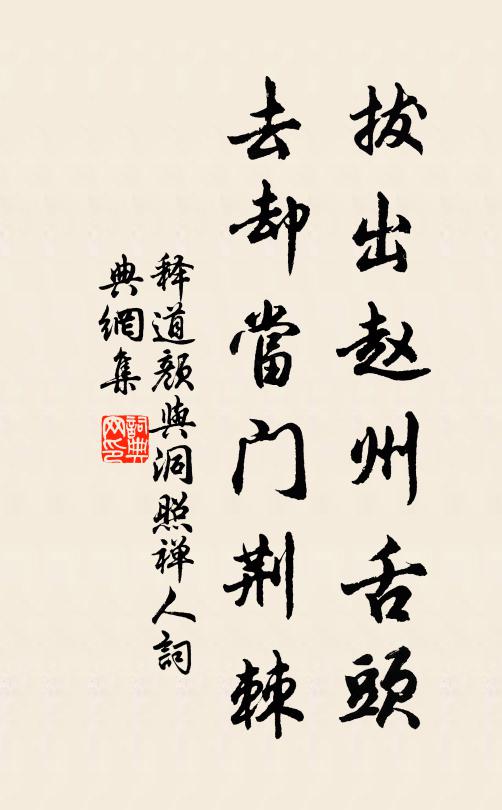 拔出赵州舌頭
去却當門荆棘
释道颜與洞照禅人詞
典網集
詞典网印